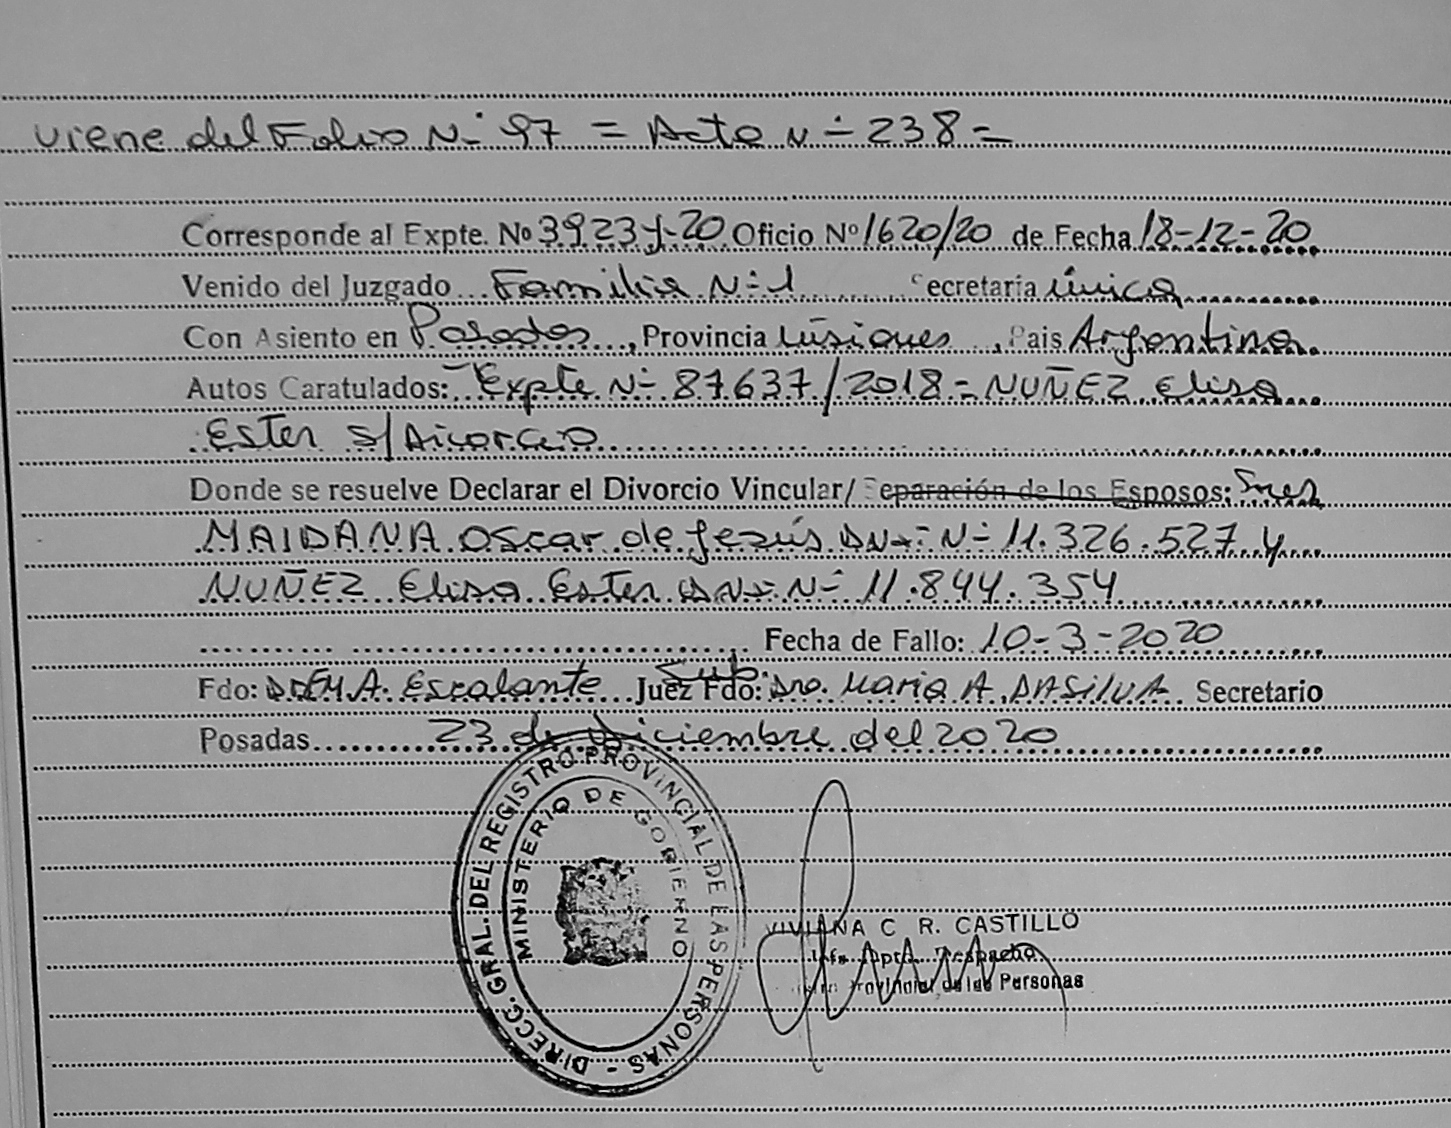 Viene del Folio Nº 97 = Acta Nº 238 =
Corresponde al Expte. Nº 3923-J-20 Oficio Nº 1620/20 de Fecha 18-12-20
Venido del Juzgado Familia Nº 1 Secretaría única
Con Asiento en Posadas, Provincia Misiones, País Argentina
Autos Caratulados: Expte Nº 87637/2018 = NUÑEZ Elisa
Ester s/Divorcio
Donde se resuelve Declarar el Divorcio Vincular/ Separación de los Esposos: Sres
MAIDANA Oscar de Jesús DNI Nº 11.326.527 y
NUÑEZ Elisa Ester DNI Nº 11.844.354
Fecha de Fallo: 10-3-2020
Fdo: M.A. Escalante Juez Sub. Fdo: Dra. Maria A. DASILVA Secretario
Posadas 23 de Diciembre del 2020
DIRECC. GRAL. DEL REGISTRO PROVINCIAL DE LAS PERSONAS
MINISTERIO DE GOBIERNO
VIVIANA C R. CASTILLO
Dpto. Despacho
Provincial de las Personas